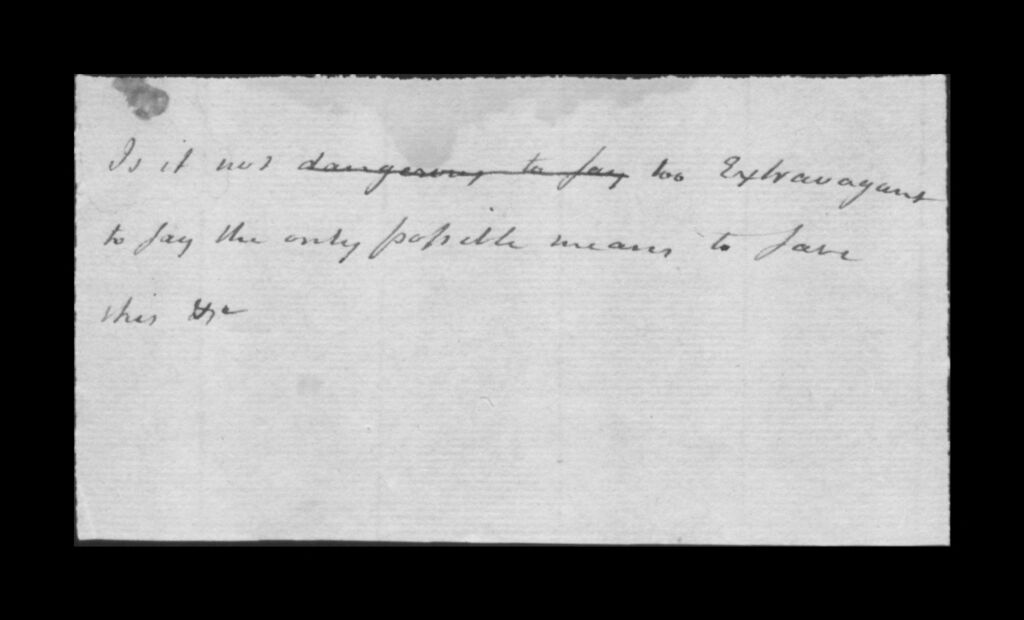 Is it not dangerous to say too Extravagant
to say the only possible means to save
this &c